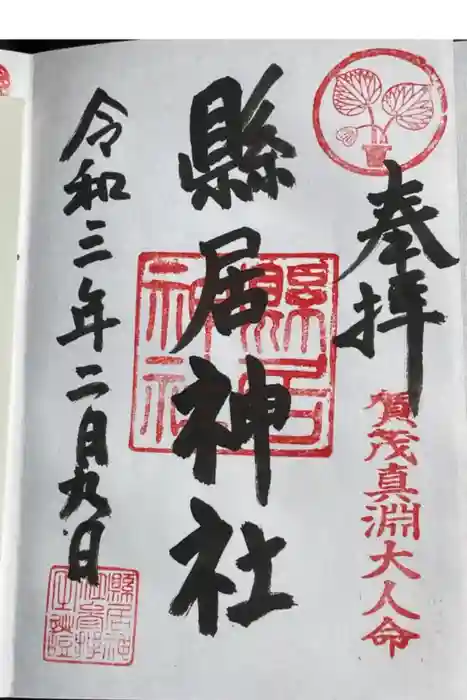 奉拝
賀茂真淵大人命
縣居神社
縣居神社
令和三年二月九日